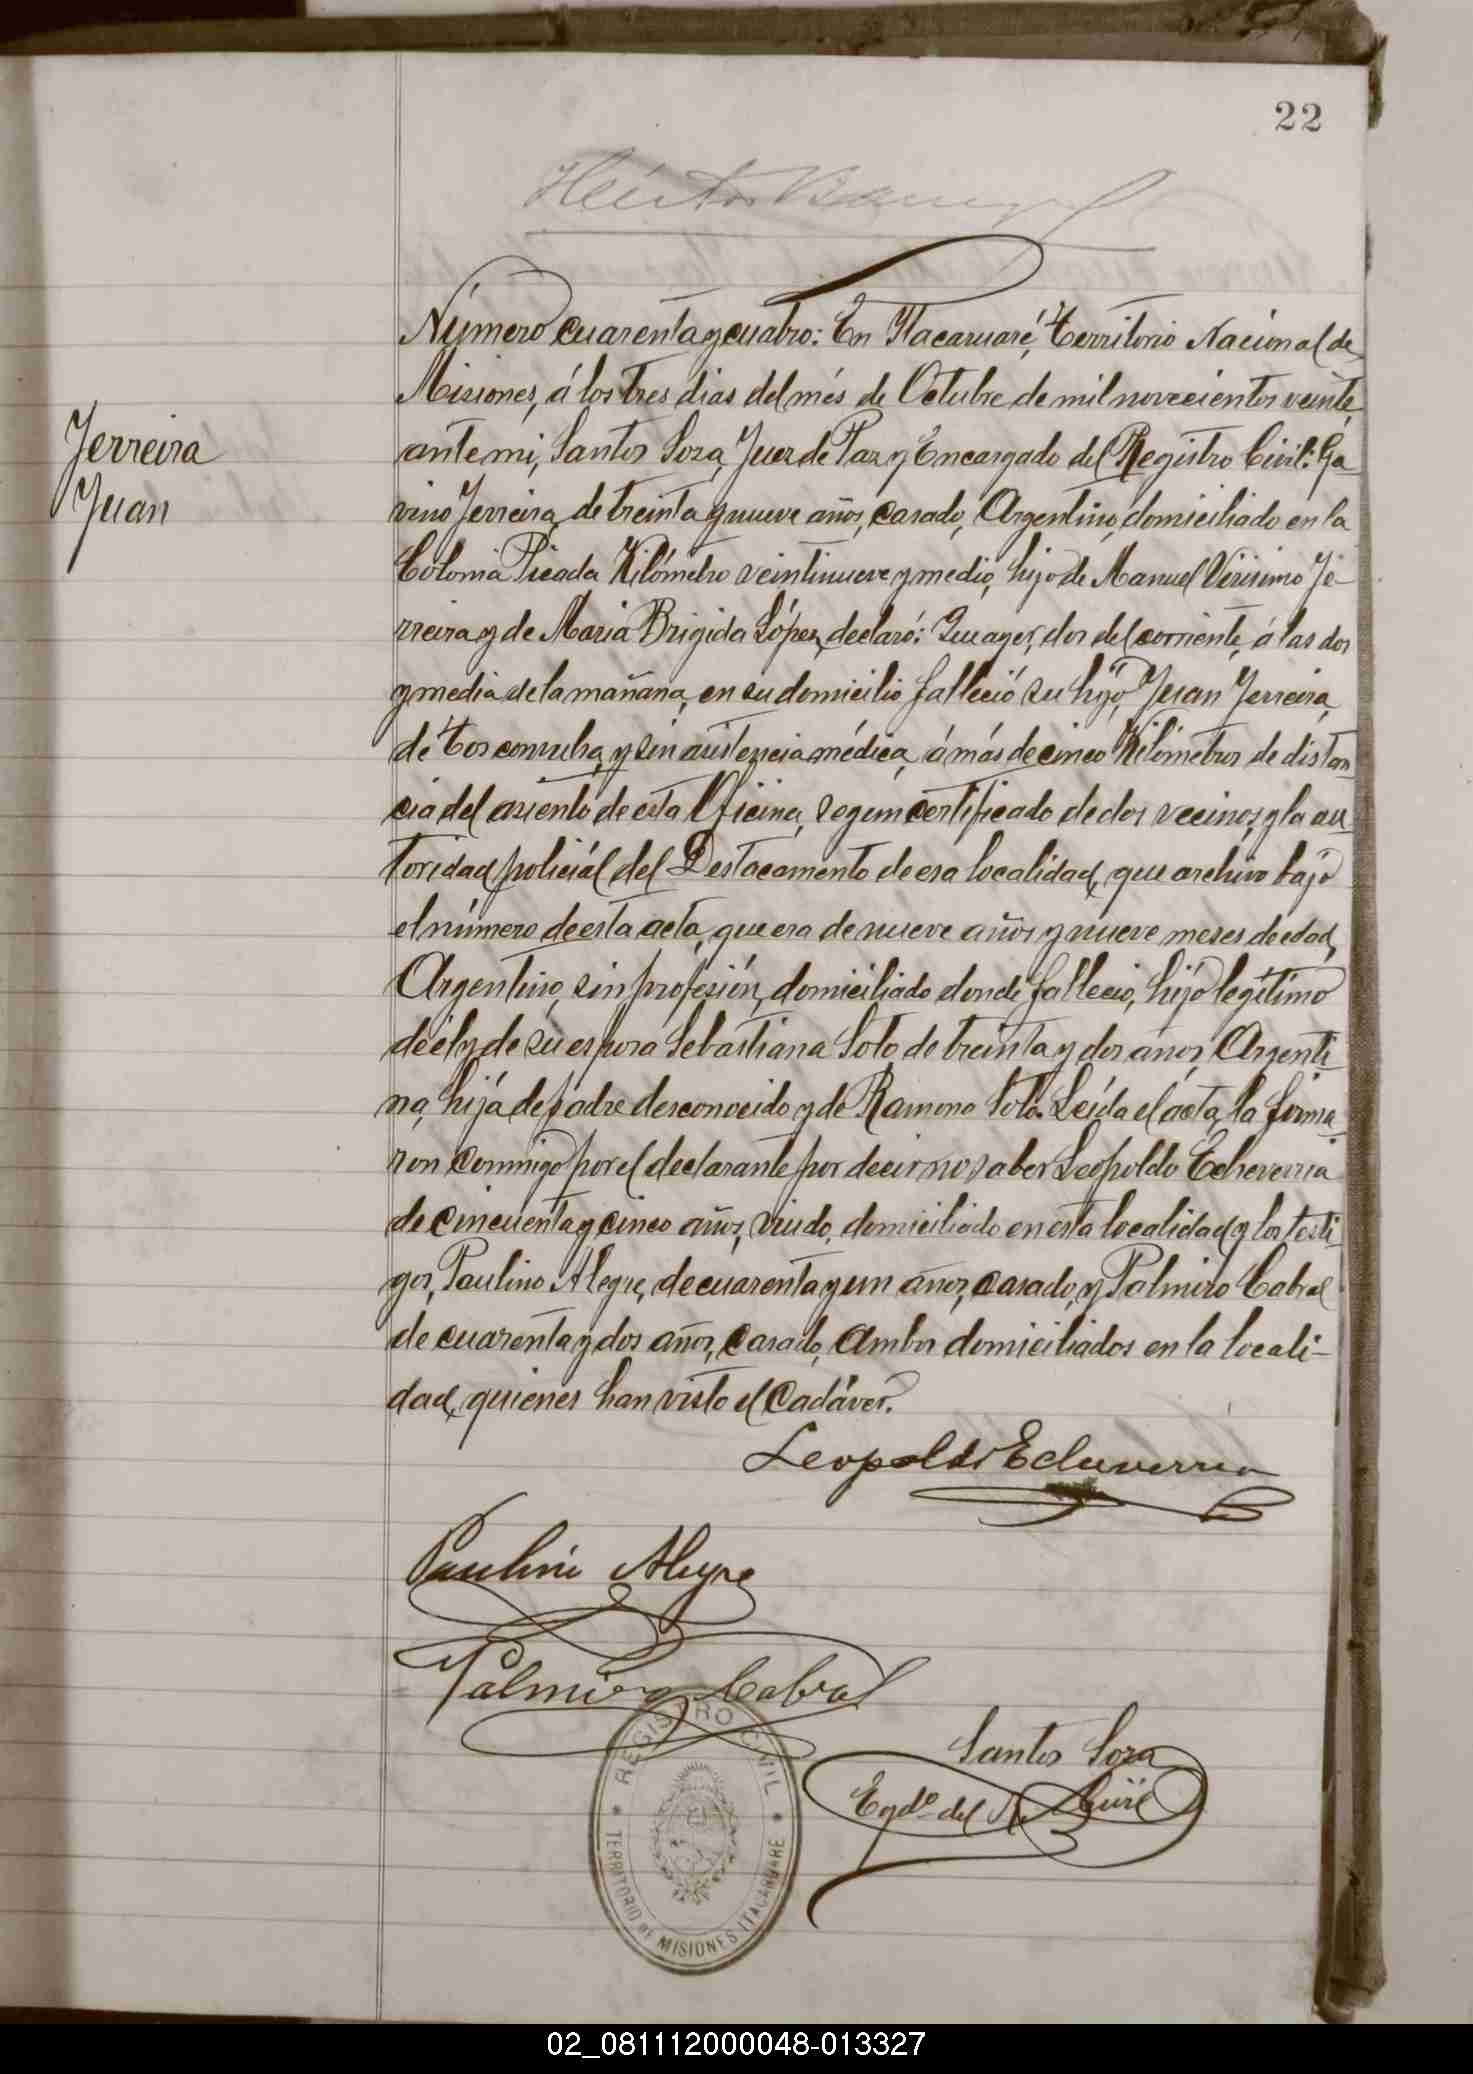 22
Número cuarenta y cuatro: En Itacaruaré, Territorio Nacional de
Misiones, á los tres dias del més de Octubre de mil novecientos veinte,
Ferreira
Juan
ante mi, Santos Soza, Juez de Paz y Encargado del Registro Civil: Ga-
vino Ferreira, de treinta y nueve años, casado, Argentino, domiciliado en la
Colonia Picada Kilómetro veintinueve y medio, hijo de Manuel Virisimo Fe-
rreira y de Maria Brigida López, declaró: Que ayer, dos del corriente, á las dos
y media de la mañana, en su domicilio falleció su hijo, Juan Ferreira,
de tos convulsa, y sin asistencia médica, á más de cinco Kilómetros de distan-
cia del asiento de esta Oficina, segun certificado de dos vecinos, y la au-
toridad policiál del Destacamento de esa localidad, que archivo bajo
el número de esta acta, que era de nueve años y nueve meses de edad,
Argentino, sin profesión, domiciliado donde fallecio, hijo legítimo
de él y de su esposa Sebastiana Soto de treinta y dos años, Argenti-
na, hija de padre desconocido y de Ramona Soto. Leída el acta, la firma-
ron conmigo por el declarante por decir no saber Leopoldo Echeverria
de cincuenta y cinco años, viudo, domiciliado en esta localidad y los testi-
gos, Paulino Alegre, de cuarenta y un años, casado, y Palmiro Cabral
de cuarenta y dos años, casado, ambos domiciliados en la locali-
dad, quienes han visto el cadáver.
Leopoldo Echeverria
Paulino Alegre
Palmiro Cabral
Santos Soza
Egdo del R. Civil
REGISTRO CIVIL
TERRITORIO DE MISIONES ITACARUARE
02_081112000048-013327